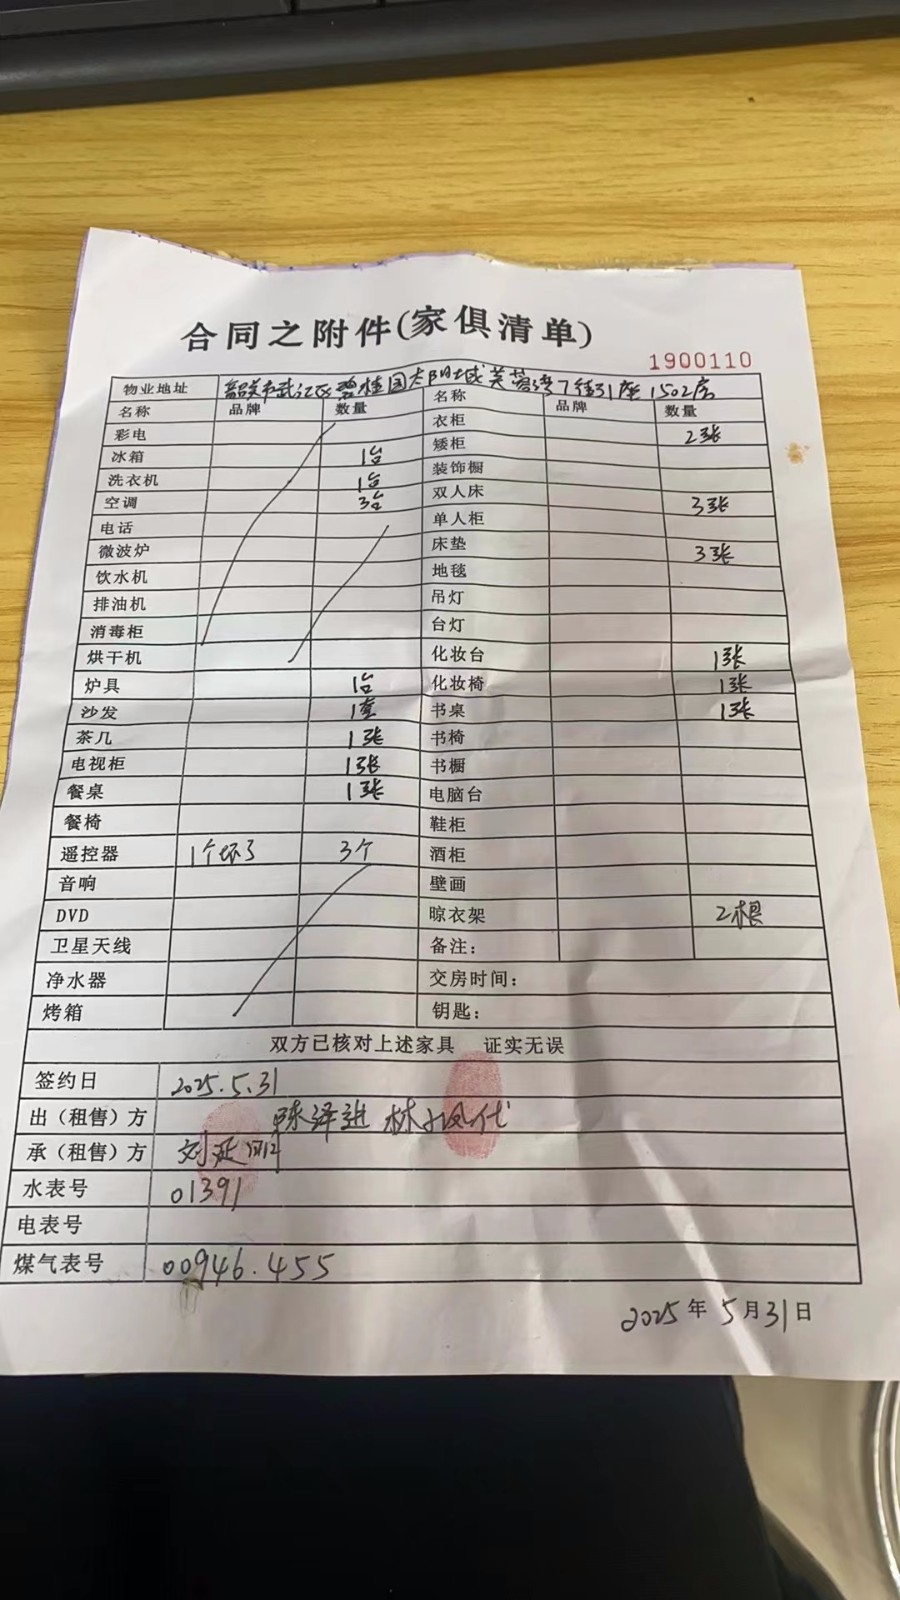 合同之附件(家俱清单)
1900110
物业地址 韶关市武江区碧桂园太阳城芙蓉湾7街31座1502房
名称 品牌 数量 名称 品牌 数量
彩电 衣柜 2张
冰箱 1台 矮柜
洗衣机 1台 装饰橱
空调 3台 双人床 3张
电话 单人柜
微波炉 床垫 3张
饮水机 地毯
排油机 吊灯
消毒柜 台灯
烘干机 化妆台 1张
炉具 1台 化妆椅 1张
沙发 1套 书桌 1张
茶几 1张 书椅
电视柜 1张 书橱
餐桌 1张 电脑台
餐椅 鞋柜
遥控器 1个坏了 3个 酒柜
音响 壁画
DVD 晾衣架 2根
卫星天线 备注：
净水器 交房时间：
烤箱 钥匙：
双方已核对上述家具 证实无误
签约日 2025.5.31
出（租售）方 陈泽进 林 代
承（租售）方 刘延
水表号 01391
电表号
煤气表号 00946.455
2025年5月31日